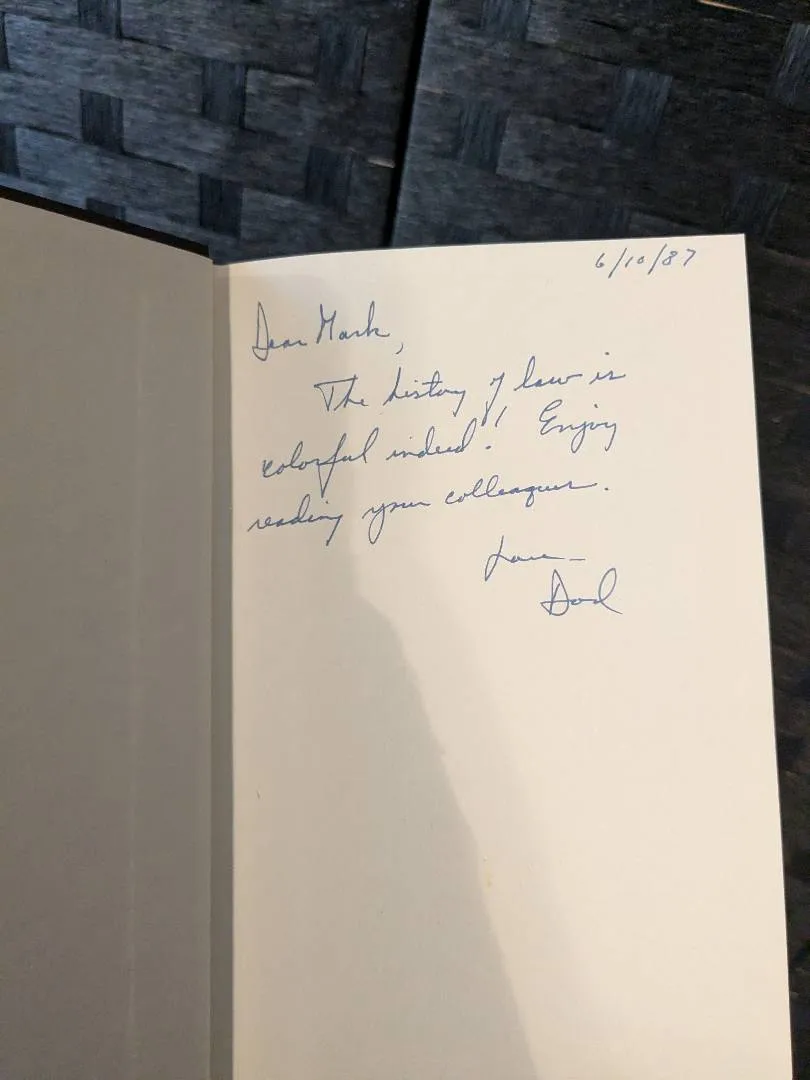 6/10/87
Dear Mark,
The history of law is
colorful indeed! Enjoy
reading your colleagues.
Love—
Dad